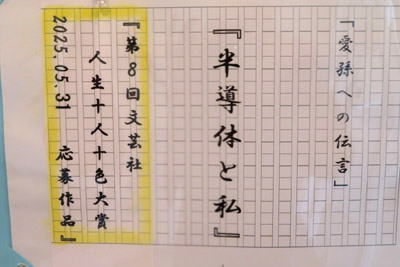 「愛孫への伝言」
『半導体と私』
『第8回文芸社
人生十人十色大賞
2025.05.31 応募作品』